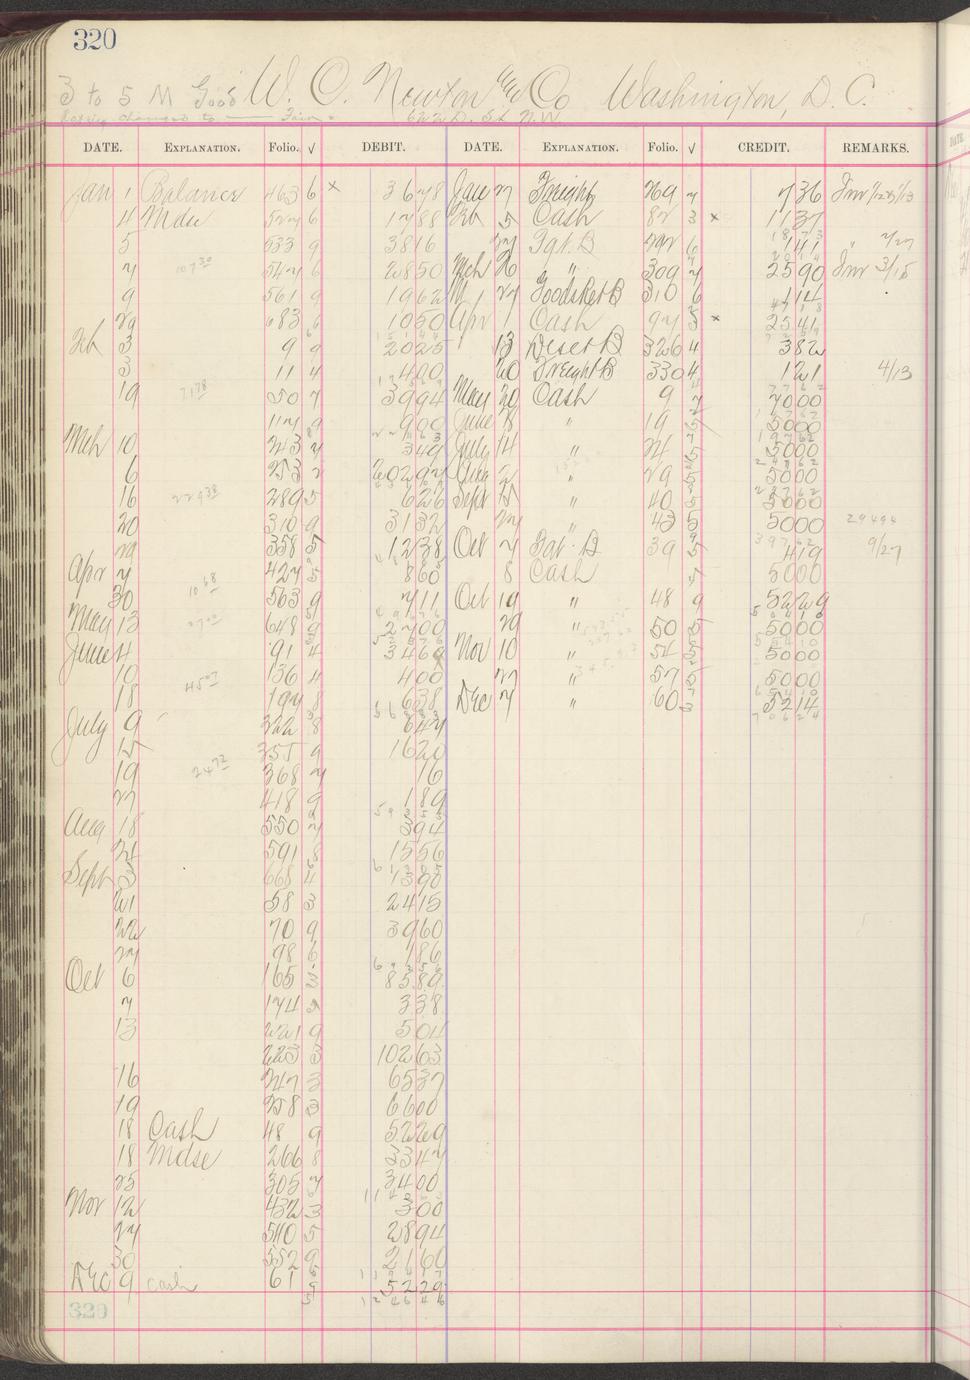 320
3 to 5 M Good W. C. Newton & Co Washington, D. C.
Rating changed to Fair
DATE. EXPLANATION. Folio. √ DEBIT. DATE. EXPLANATION. Folio. √ CREDIT. REMARKS.
Jan 1 Balance 463 6 x 3678 Jan 27 Freight 769 7 736
4 Mdse 527 6 1788 Feb 5 Cash 82 3 x 1137
5 533 9 3816 141
7 547 6 2850 Mch 26 " 309 7 2590 Inv 3/15
9 561 9 1962 27 310 6 114
29 683 6 1050 Apr 1 Cash 97 3 x 2541
Feb 3 9 9 2025 13 326 4 382
3 11 4 400 20 Freight B 330 4 121 4/13
19 50 7 3994 May 20 Cash 9 7 7000
117 9 900 June 8 " 19 5 5000
Mch 10 243 7 349 July 14 " 24 5 5000
6 253 2 Aug 2 " 29 5 5000
16 289 5 626 Sept " 40 5 5000
20 310 9 3132 27 " 43 5 5000 29494
29 358 5 1238 Oct 7 39 5 419 9/27
Apr 7 427 5 860 8 Cash 5000
30 563 9 711 Oct 19 " 48 9 5229
May 13 648 2700 29 " 50 5 5000
June 4 91 4 3469 Nov 10 " 54 5 5000
10 136 4 400 27 " 57 5 5000
18 197 8 638 Dec 7 " 60 3 5214
July 9 322 8 647
15 355 9 1620
19 2472 368 7 16
27 418 9 189
Aug 18 550 7 394
24 591 8 1556
Sept 3 668 4 1390
21 58 3 2415
22 70 9 3960
27 98 6 186
Oct 6 165 3 8589
7 174 338
13 221 9 504
223 3 10263
16 247 3 6537
19 258 3 6600
18 Cash 48 9 5229
18 Mdse 266 8 3347
25 305 7 3400
Nov 12 432 3 300
27 540 5 2894
30 552 9 2160
Dec 9 Cash 61 5229
320